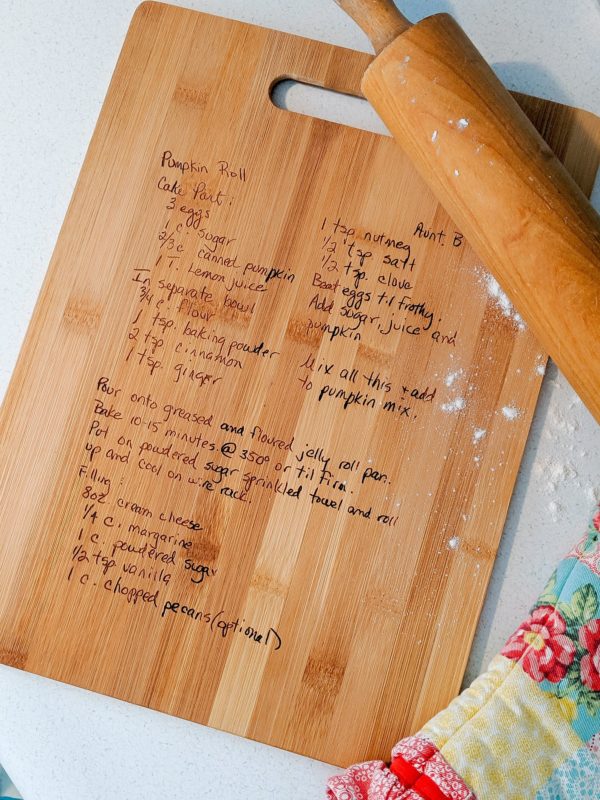 Pumpkin Roll
Aunt. B
Cake Part:
3 eggs
1 c. sugar
2/3 c canned pumpkin
1 T. Lemon juice
In separate bowl
3/4 c. flour
1 tsp. baking powder
2 tsp cinnamon
1 tsp. ginger
1 tsp. nutmeg
1/2 tsp salt
1/2 tsp. clove
Beat eggs til frothy.
Add sugar, juice and
pumpkin
Mix all this + add
to pumpkin mix.
Pour onto greased and floured jelly roll pan.
Bake 10-15 minutes @ 350° or til firm.
Put on powdered sugar sprinkled towel and roll
up and cool on wire rack.
Filling:
8oz cream cheese
1/4 c. margarine
1 c. powdered sugar
1/2 tsp vanilla
1 c. chopped pecans (optional)